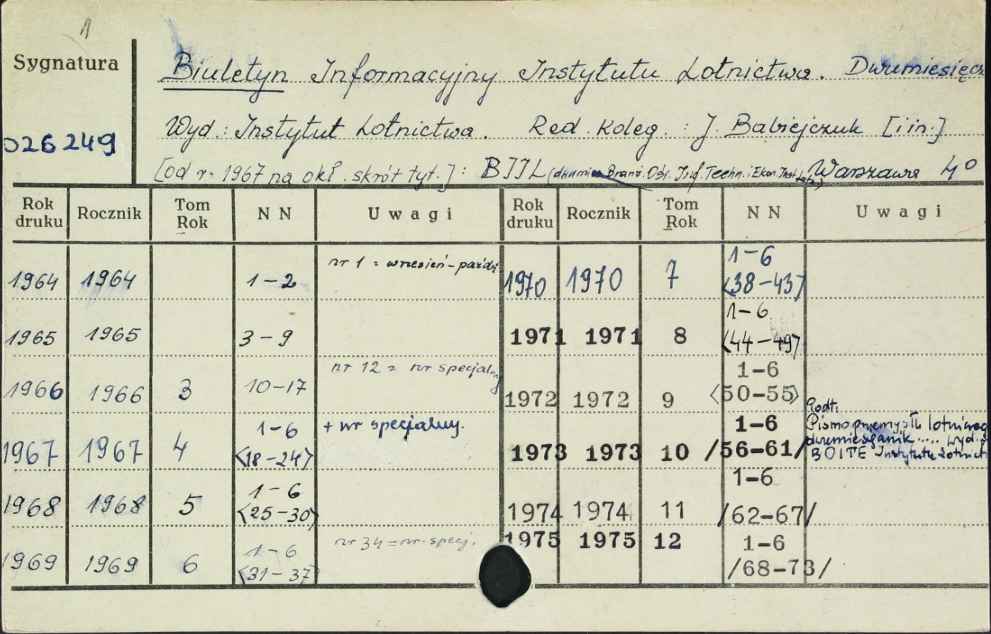 1
Sygnatura
026249
Biuletyn Informacyjny Instytutu Lotnictwa. Dwumiesięcz
Wyd: Instytut Lotnictwa. Red. koleg.: J. Babiejczuk [i in.]
[od r. 1967 na okł. skrót tyt.]: BIIL Warszawa 4°
Rok druku Rocznik Tom Rok NN Uwagi Rok druku Rocznik Tom Rok NN Uwagi
1964 1964 1-2 nr 1 = wrzesień-paźdz. 1970 1970 7 1-6 <38-43>
1965 1965 3-9 1971 1971 8 1-6 <44-49>
1966 1966 3 10-17 nr 12 = nr specjalny 1972 1972 9 1-6 <50-55>
1967 1967 4 1-6 <18-24> + nr specjalny. 1973 1973 10 1-6 /56-61/ Podt: Pismo przemysłu lotniczego dwumiesięcznik.... wyd. BOITE Instytutu Lotnict
1968 1968 5 1-6 <25-30> 1974 1974 11 1-6 /62-67/
1969 1969 6 1-6 <31-37> nr 34 = nr spec. 1975 1975 12 1-6 /68-73/